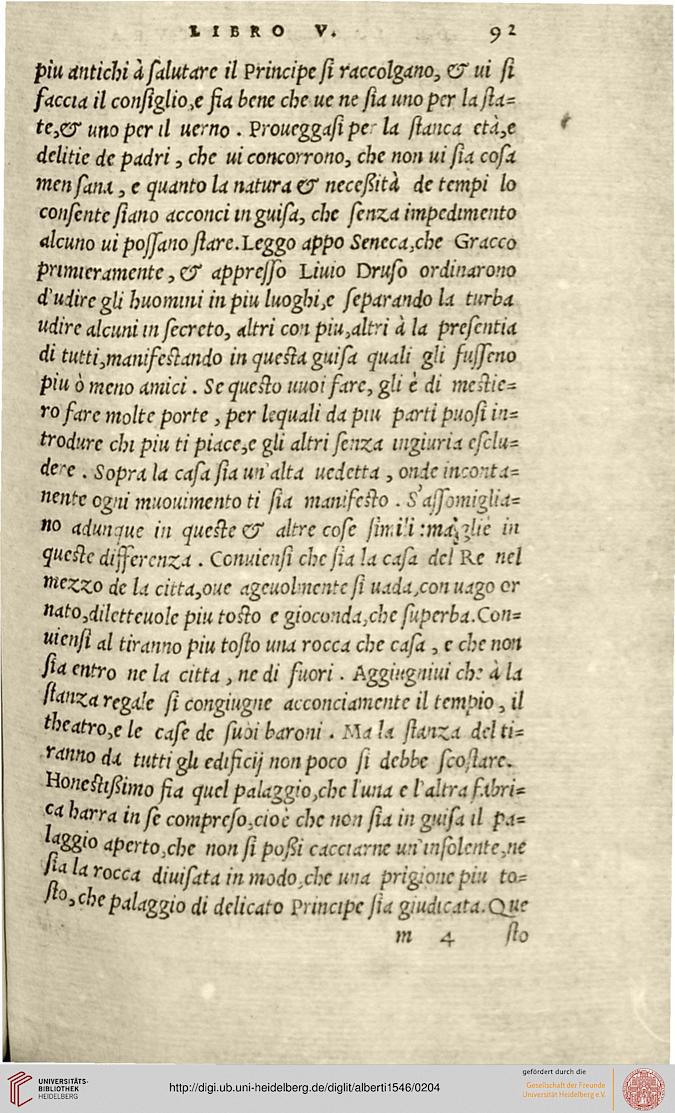 LIBRO V. 92
piu antichi à salutare il Principe si raccolgano, & ui si
faccia il consiglio,e fia bene che ue ne sia uno per la sta=
te,& uno per il uerno . Proueggasi per la stanca età,e
delitie de padri , che ui concorrono, che non ui sia cosa
men sana , e quanto la natura & neceßità de tempi lo
consente siano acconci in guisa, che senza impedimento
alcuno ui possano stare.Leggo appo Seneca,che Gracco
primieramente , & appresso Liuio Druso ordinarono
d'udire gli huomini in piu luoghi,e separando la turba
udire alcuni in secreto, altri con piu,altri à la presentia
di tutti,manifestando in questa guisa quali gli fusseno
piu ò meno amici . Se questo uuoi fare, gli è di mestie=
ro fare molte porte , per lequali da piu parti puosi in=
trodure chi piu ti piace,e gli altri senza ingiuria esclu=
dere . Sopra la casa sia un'alta uedetta , onde incontà=
nente ogni muouimento ti sia manifesto . S'assomiglia=
no adunque in queste & altre cose simili : in
queste differenza . Conuiensi che sia la casa del Re nel
mezzo de la citta,oue ageuolmente si uada,con uago or
nato,diletteuole piu tosto e gioconda,che superba.Con=
uiensi al tiranno piu tosto una rocca che casa , e che non
sia entro ne la citta , ne di fuori . Aggiugniui che à la
stanza regale si congiugne acconciamente il tempio , il
theatro,e le case de suoi baroni . Ma la stanza del ti=
ranno da tutti gli edificij non poco si debbe scostare.
Honestißimo fia quel palaggio,che l'una e l'altra fabri=
ca harra in se compreso,cioè che non sia in guisa il pa=
laggio aperto,che non si poßi cacciarne un'insolente,ne
sia la rocca diuisata in modo,che una prigione piu to=
sto, che palaggio di delicato Principe sia giudicata.Que
m 4 sto
UNIVERSITÄTS-
BIBLIOTHEK
HEIDELBERG
http://digi.ub.uni-heidelberg.de/diglit/alberti1546/0204
gefördert durch die
Gesellschaft der Freunde
Universität Heidelberg e.V.